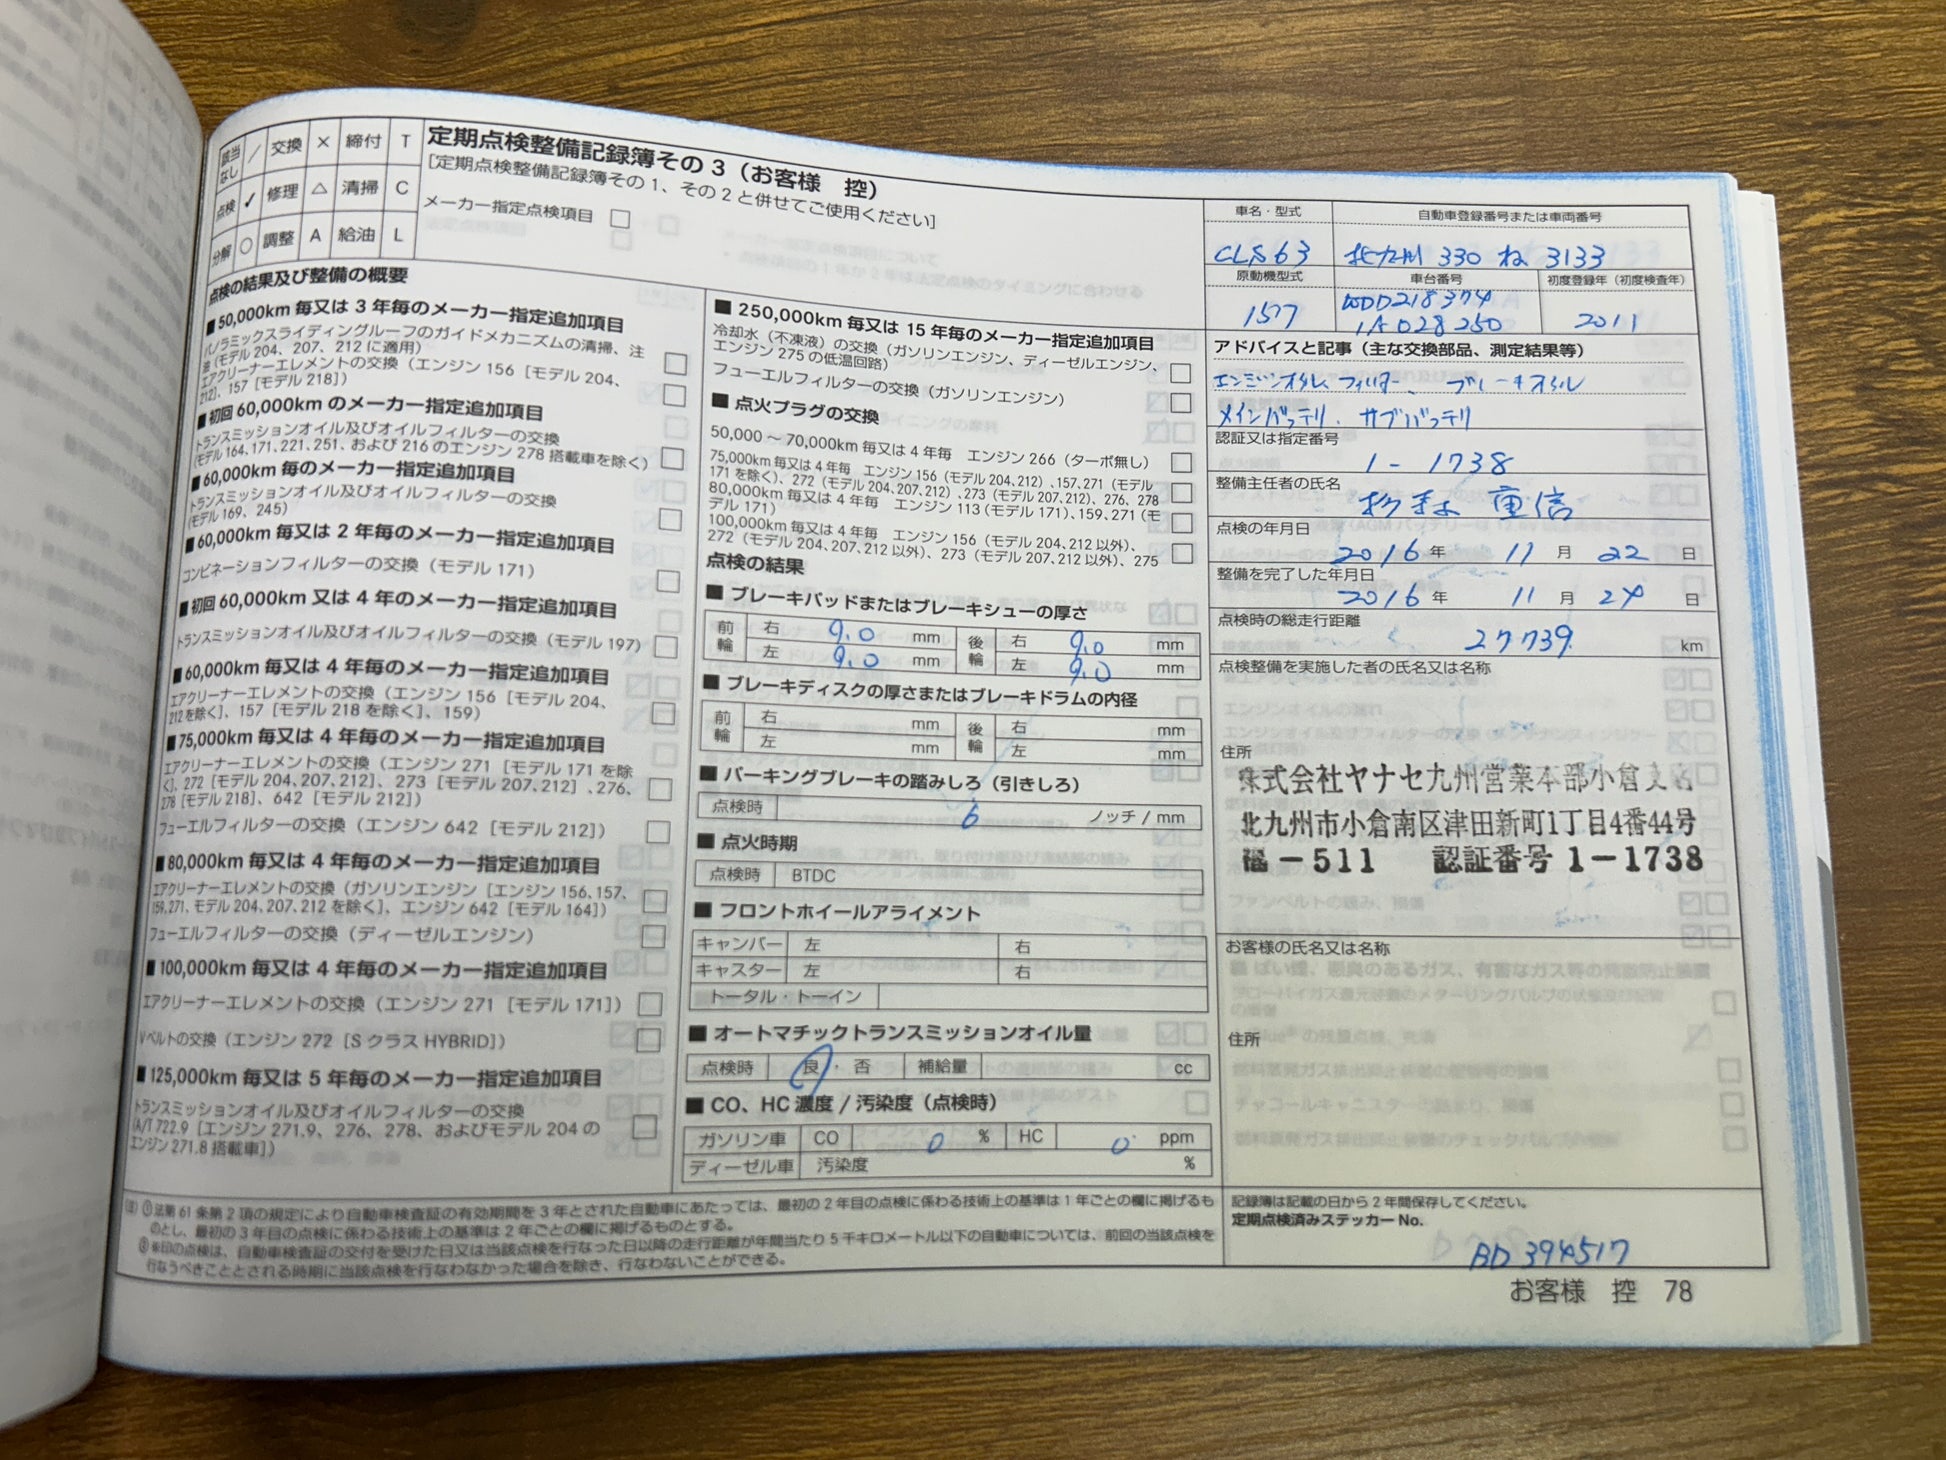 該当なし ／ 交換 × 締付 T
点検 ✓ 修理 △ 清掃 C
分解 ○ 調整 A 給油 L
定期点検整備記録簿その3（お客様　控）
[定期点検整備記録簿その1、その2と併せてご使用ください]
メーカー指定点検項目 □
点検の結果及び整備の概要
■50,000km毎又は3年毎のメーカー指定追加項目
パノラミックスライディングルーフのガイドメカニズムの清掃、注
油（モデル204、207、212に適用） □
エアクリーナーエレメントの交換（エンジン156［モデル204、
212］、157［モデル218］） □
■初回60,000kmのメーカー指定追加項目
トランスミッションオイル及びオイルフィルターの交換
（モデル164、171、221、251、および216のエンジン278搭載車を除く） □
■60,000km毎のメーカー指定追加項目
トランスミッションオイル及びオイルフィルターの交換
（モデル169、245） □
■60,000km毎又は2年毎のメーカー指定追加項目
コンビネーションフィルターの交換（モデル171） □
■初回60,000km又は4年のメーカー指定追加項目
トランスミッションオイル及びオイルフィルターの交換（モデル197） □
■60,000km毎又は4年毎のメーカー指定追加項目
エアクリーナーエレメントの交換（エンジン156［モデル204、
212を除く］、157［モデル218を除く］、159） □
■75,000km毎又は4年毎のメーカー指定追加項目
エアクリーナーエレメントの交換（エンジン271［モデル171を除
く］、272［モデル204、207、212］、273［モデル207、212］、276、
278［モデル218］、642［モデル212］） □
フューエルフィルターの交換（エンジン642［モデル212］） □
■80,000km毎又は4年毎のメーカー指定追加項目
エアクリーナーエレメントの交換（ガソリンエンジン［エンジン156、157、
159、271、モデル204、207、212を除く］、エンジン642［モデル164］） □
フューエルフィルターの交換（ディーゼルエンジン） □
■100,000km毎又は4年毎のメーカー指定追加項目
エアクリーナーエレメントの交換（エンジン271［モデル171］） □
Vベルトの交換（エンジン272［SクラスHYBRID］） □
■125,000km毎又は5年毎のメーカー指定追加項目
トランスミッションオイル及びオイルフィルターの交換
（A/T722.9［エンジン271.9、276、278、およびモデル204の
エンジン271.8搭載車］） □
■250,000km毎又は15年毎のメーカー指定追加項目
冷却水（不凍液）の交換（ガソリンエンジン、ディーゼルエンジン、
エンジン275の低温回路） □
フューエルフィルターの交換（ガソリンエンジン） □
■点火プラグの交換
50,000～70,000km毎又は4年毎　エンジン266（ターボ無し） □
75,000km毎又は4年毎　エンジン156（モデル204、212）、157、271（モデル
171を除く）、272（モデル204、207、212）、273（モデル207、212）、276、278 □
80,000km毎又は4年毎　エンジン113（モデル171）、159、271（モ
デル171） □
100,000km毎又は4年毎　エンジン156（モデル204、212以外）、
272（モデル204、207、212以外）、273（モデル207、212以外）、275 □
点検の結果
■ブレーキパッドまたはブレーキシューの厚さ
前輪 右 9.0 mm 後輪 右 9.0 mm
左 9.0 mm 左 9.0 mm
■ブレーキディスクの厚さまたはブレーキドラムの内径
前輪 右 mm 後輪 右 mm
左 mm 左 mm
■パーキングブレーキの踏みしろ（引きしろ）
点検時 6 ノッチ / mm
■点火時期
点検時 BTDC
■フロントホイールアライメント
キャンバー 左 右
キャスター 左 右
トータル・トーイン
■オートマチックトランスミッションオイル量
点検時 良・否 補給量 cc
■CO、HC濃度 / 汚染度（点検時）
ガソリン車 CO 0 % HC 0 ppm
ディーゼル車 汚染度 %
車名・型式 自動車登録番号または車両番号
CLS63 北九州 330 ね 3133
原動機型式 車台番号 初度登録年（初度検査年）
157 WDD218374
1A028250 2011
アドバイスと記事（主な交換部品、測定結果等）
エンジンオイル、フィルター、ブレーキオイル
メインバッテリ、サブバッテリ
認証又は指定番号
1-1738
整備主任者の氏名
重信
点検の年月日
2016年 11月 22日
整備を完了した年月日
2016年 11月 24日
点検時の総走行距離
27739 km
点検整備を実施した者の氏名又は名称
住所
株式会社ヤナセ九州営業本部小倉支店
北九州市小倉南区津田新町1丁目4番44号
福－511　認証番号1－1738
お客様の氏名又は名称
住所
記録簿は記載の日から2年間保存してください。
定期点検済みステッカーNo.
BD394517
(注) ①法第61条第2項の規定により自動車検査証の有効期間を3年とされた自動車にあたっては、最初の2年目の点検に係わる技術上の基準は1年ごとの欄に掲げるも
のとし、最初の3年目の点検に係わる技術上の基準は2年ごとの欄に掲げるものとする。
②※印の点検は、自動車検査証の交付を受けた日又は当該点検を行なった日以降の走行距離が年間当たり5千キロメートル以下の自動車については、前回の当該点検を
行なうべきこととされる時期に当該点検を行なわなかった場合を除き、行なわないことができる。
お客様　控　78